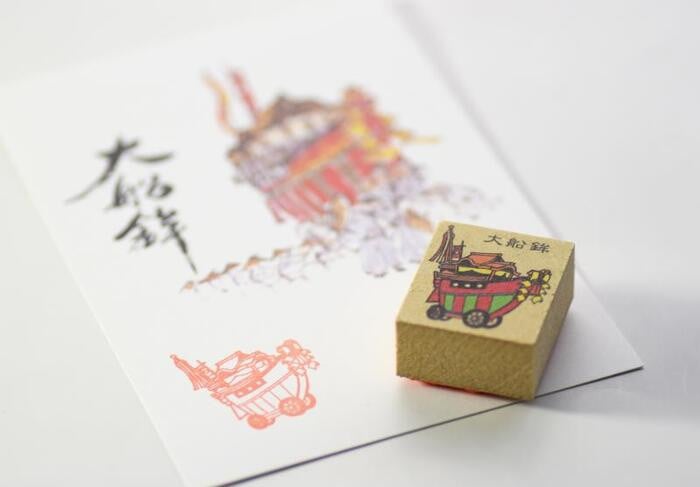 大船鉾
大船鉾